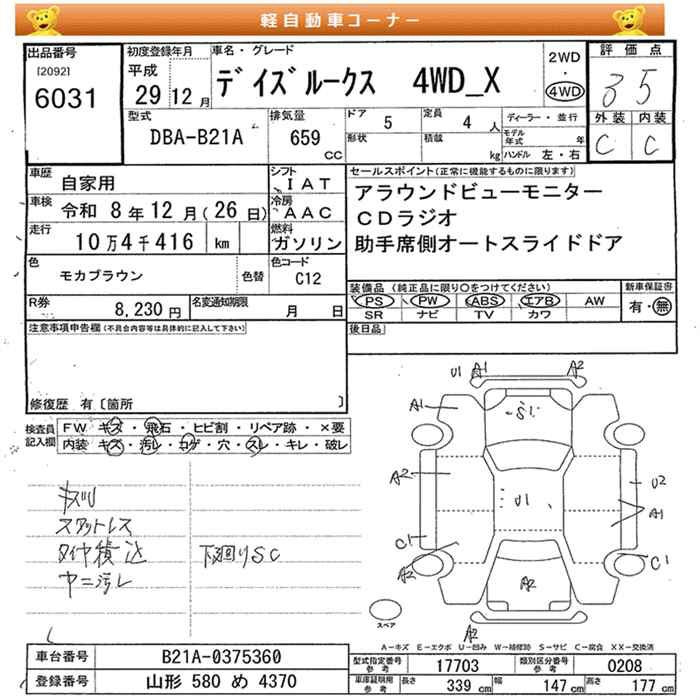 軽自動車コーナー
出品番号
[2092]
6031
初度登録年月
平成
29 12月
車名・グレード
デイズルークス 4WD_X
2WD
・
4WD
評価点
3 5
外装 内装
C C
型式
DBA-B21A
排気量
659
CC
ドア 5
定員 4 人
形状
積載 kg
ディーラー・並行
モデル年式 年
ハンドル 左・右
車歴 自家用
シフト IAT
車検 令和 8年12月(26日)
冷房 AAC
走行 10万4千416 km
燃料 ガソリン
色 モカブラウン 色替
色コード C12
R券 8,230円
名変通知期限 月 日
セールスポイント(正常に機能するものに限ります)
アラウンドビューモニター
CDラジオ
助手席側オートスライドドア
装備品(純正品に限り○をつけてください)
PS PW ABS エアB AW
SR ナビ TV カワ
新車保証書
有・無
後日品
注意事項申告欄(不具合内容等は具体的に記入して下さい)
修復歴 有〔箇所 〕
検査員記入欄
FW キズ・飛石・ヒビ割・リペア跡・×要
内装 キズ・汚レ・コゲ・穴・スレ・キレ・破レ
キズU
スタットレス
タイヤ積込
ヤニ汚レ
下廻りSC
U1 A1 A2
A1
S1
A2
U1
U2
A1
C1
A2
C1
A2
A2
スペア
A-キズ E-エクボ U-凹み W-補修跡 S-サビ C-腐食 XX-交換済
車台番号 B21A-0375360
登録番号 山形 580 め 4370
型式指定番号 参考 17703
類別区分番号 参考 0208
車庫証明用 参考 長さ 339 cm 幅 147 cm 高さ 177 cm